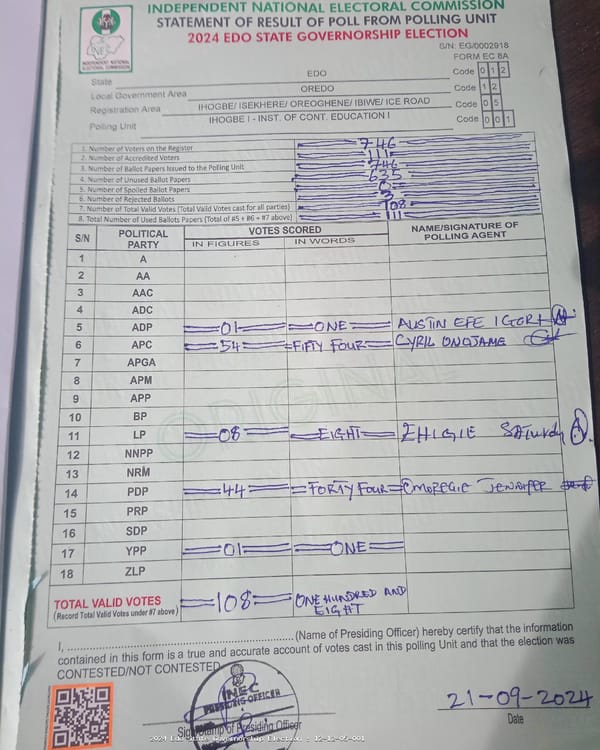 INDEPENDENT NATIONAL ELECTORAL COMMISSION
STATEMENT OF RESULT OF POLL FROM POLLING UNIT
2024 EDO STATE GOVERNORSHIP ELECTION
S/N: EG/0002918
FORM EC 8A
INEC
INDEPENDENT NATIONAL ELECTORAL COMMISSION
State EDO Code 0 1 2
Local Government Area OREDO Code 1 2
Registration Area IHOGBE/ ISEKHERE/ OREOGHENE/ IBIWE/ ICE ROAD Code 0 5
Polling Unit IHOGBE I - INST. OF CONT. EDUCATION I Code 0 0 1
1. Number of Voters on the Register 746
2. Number of Accredited Voters 111
3. Number of Ballot Papers Issued to the Polling Unit 746
4. Number of Unused Ballot Papers 635
5. Number of Spoiled Ballot Papers 0
6. Number of Rejected Ballots 3
7. Number of Total Valid Votes (Total Valid Votes cast for all parties) 108
8. Total Number of Used Ballots Papers (Total of #5 + #6 + #7 above) 111
S/N POLITICAL PARTY VOTES SCORED NAME/SIGNATURE OF POLLING AGENT
IN FIGURES IN WORDS
1 A
2 AA
3 AAC
4 ADC
5 ADP 01 ONE AUSTIN EFE
6 APC 54 FIFTY FOUR CYRIL ONOJAME
7 APGA
8 APM
9 APP
10 BP
11 LP 08 EIGHT EHIGIE Saturday
12 NNPP
13 NRM
14 PDP 44 FORTY FOUR OMOREGIE JENNIFER
15 PRP
16 SDP
17 YPP 01 ONE
18 ZLP
ORIGINAL
TOTAL VALID VOTES 108 ONE HUNDRED AND EIGHT
(Record Total Valid Votes under #7 above)
I, ........ (Name of Presiding Officer) hereby certify that the information
contained in this form is a true and accurate account of votes cast in this polling Unit and that the election was
CONTESTED/NOT CONTESTED
INEC
PRESIDING OFFICER
21-09-2024
Sign/Stamp of Presiding Officer
Date
2024 Edo State Governorship Election - 12-12-05-001